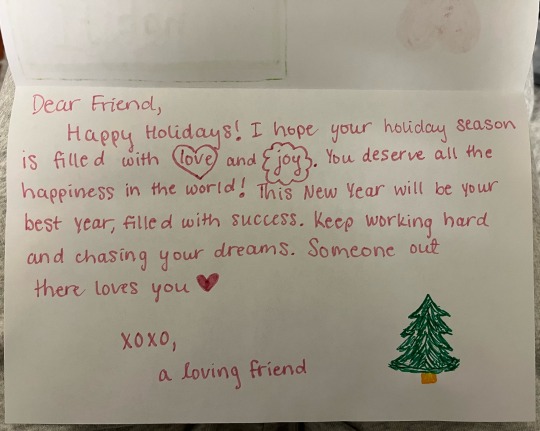 Dear Friend,
Happy Holidays! I hope your holiday season
is filled with love and joy. You deserve all the
happiness in the world! This New Year will be your
best year, filled with success. Keep working hard
and chasing your dreams. Someone out
there loves you ♥
xoxo,
a loving friend